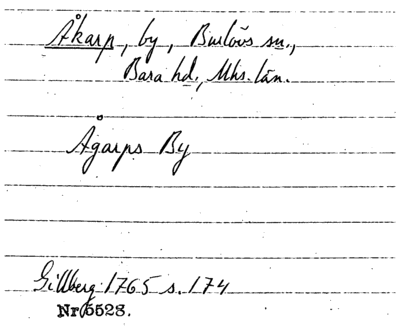 Åkarp, by, Burlövs sn.,
Bara hd., Mhs. län.
Ågarps By
Gillberg 1765 s. 174
Nr 5528.